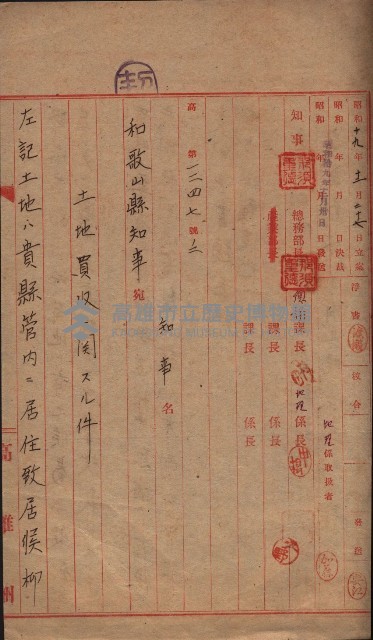 昭和十九年十一月二十七日立案
昭和 年 月 日決裁
昭和 年 月 日發送
淨書
校合
發送
地理係取扱者
知事
總務部長
課長
地理係長
課長 係長
課長 係長
高第一三四七號ノ二
知事名
和歌山縣知事宛
土地買收ニ関スル件
左記土地ハ貴縣管内ニ居住致居候柳
高雄州
高雄市立歷史博物館
KAOHSIUNG MUSEUM OF HISTORY